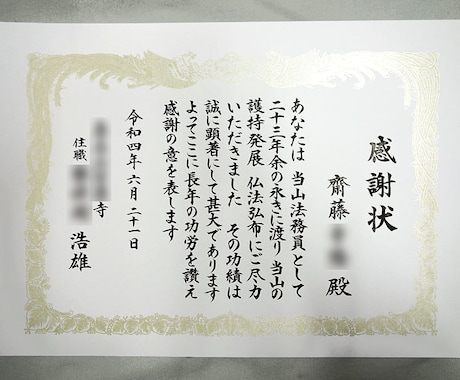 感謝状
齋藤 殿
あなたは 当山法務員として
二十三年余の永きに渡り当山の
護持発展 仏法弘布にご尽力
いただきました その功績は
誠に顕著にして甚大であります
よってここに長年の功労を讃え
感謝の意を表します
令和四年六月二十一日
寺
住職 浩雄